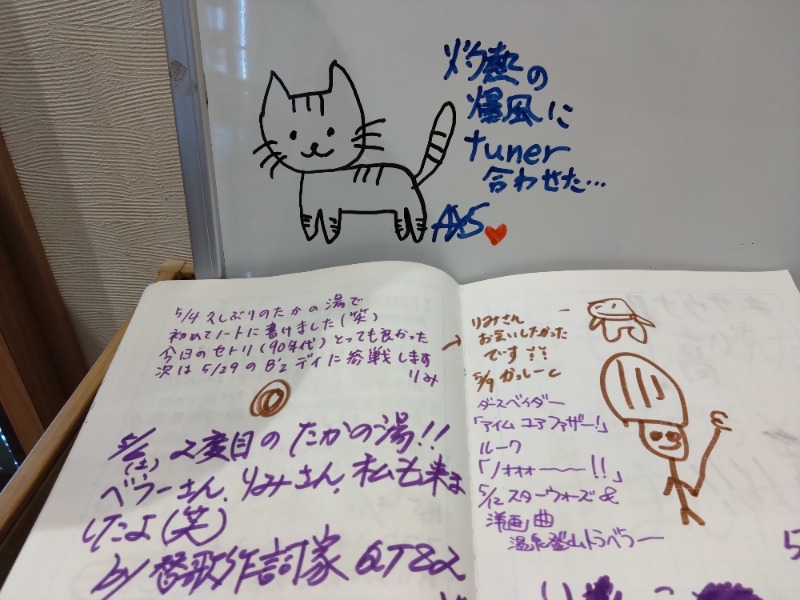 灼熱の
爆風に
tuner
合わせた…
5/4 久しぶりのたかの湯で
初めてノートに書けました(笑)
今日のセトリ(90年代)とっても良かった
次は5/29のB'zデイに参戦します
りみ
2度目のたかの湯!!
べラーさん、りみさん、私も来ま
したよ(笑)
by 替歌作詞家
りみさん
お会いしたかった
です
5/9
ダースベイダー
「アイム ユア ファザー!」
ルーク
「ノォォォ〜〜!!」
5/12 スターウォーズ &
洋画曲
温泉登山トラベラー